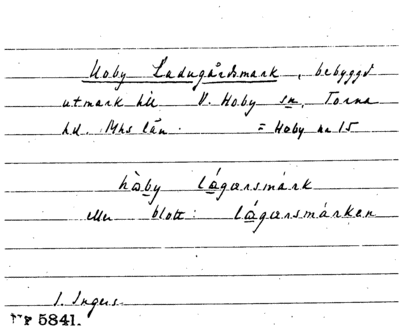 Hoby Ladugårdsmark, bebyggd
utmark till V. Hoby sn, Torna
hd. Mhs län. = Hoby nr 15
hàby lágarsmárk
eller blott: lágarsmárken
I. Ingers.
Nr 5841.